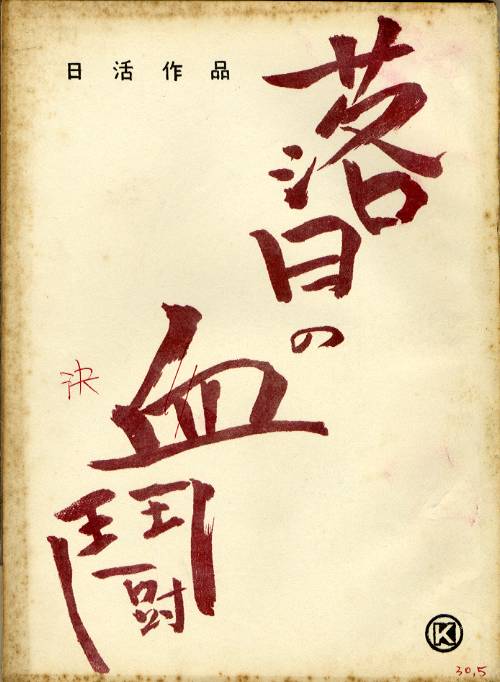 日活作品
落日の
血鬪
決
K
30.5